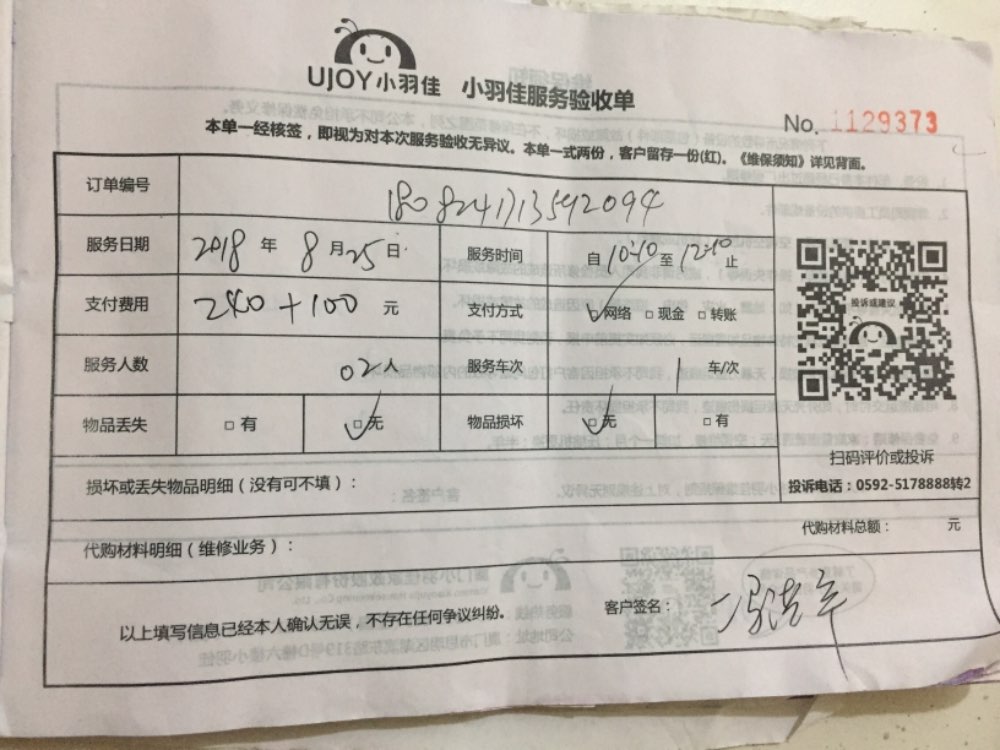 UJOY小羽佳 小羽佳服务验收单
No. 1129373
本单一经核签，即视为对本次服务验收无异议。本单一式两份，客户留存一份(红)。《维保须知》详见背面。
订单编号 1808241713592094
服务日期 2018 年 8 月 25 日 服务时间 自 10:10 至 12:10 止
支付费用 240 + 100 元 支付方式 □网络 □现金 □转账
投诉或建议
服务人数 02人 服务车次 1 车/次
物品丢失 □有 □无 物品损坏 □无 □有
扫码评价或投诉
损坏或丢失物品明细（没有可不填）：
投诉电话：0592-5178888转2
代购材料总额： 元
代购材料明细（维修业务）：
以上填写信息已经本人确认无误，不存在任何争议纠纷。 客户签名：